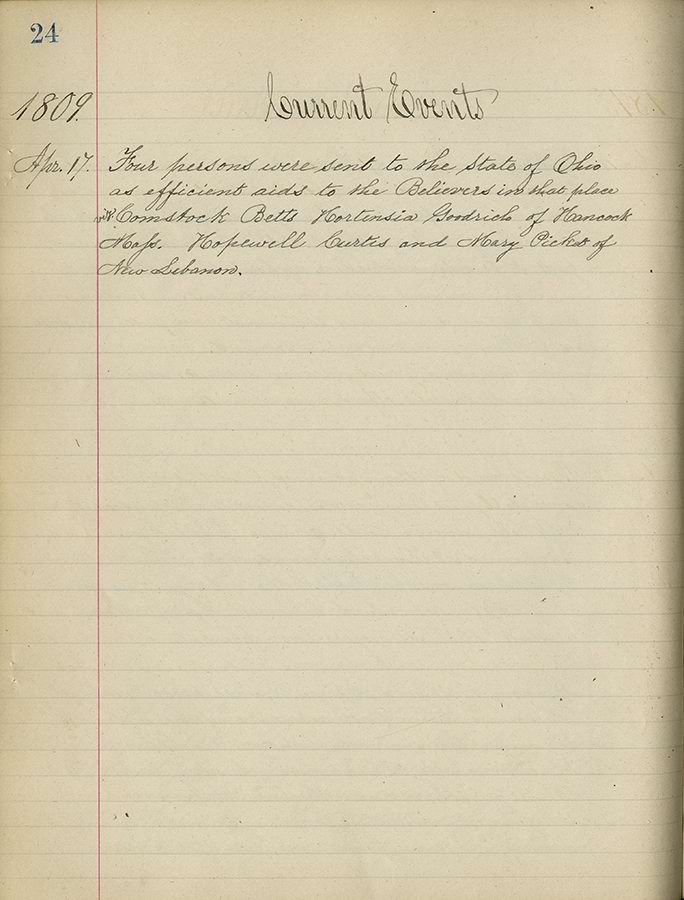 24
1809. Current Events
Apr. 17. Four persons were sent to the State of Ohio
as efficient aids to the Believers in that place
viz. Comstock Betts Hortensia Goodrich of Hancock
Mass. Hopewell Curtis and Mary Picket of
New Lebanon.